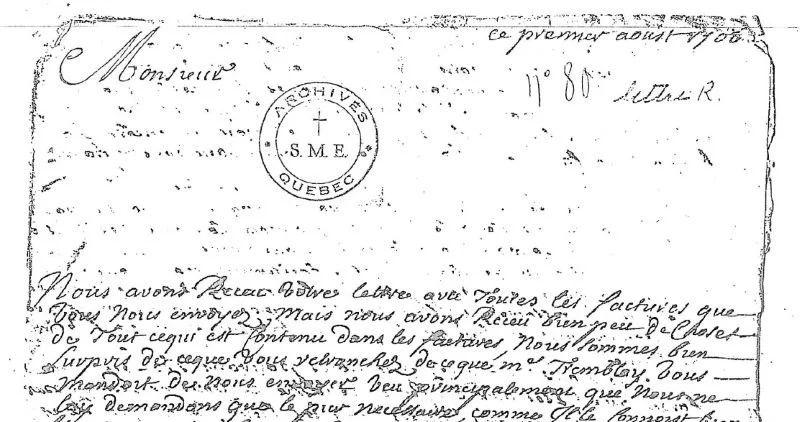 ce premier aoust 1706
Monsieur
n° 80 lettre R.
ARCHIVES
S. M. E.
QUEBEC
Nous avons Receu Vôtre lettre avec Toutes les factures que
Vous Nous envoyez, Mais nous avons Receu bien peu de Choses
de Tout cequi est Contenu dans les factures, Nous sommes bien
Surpris de ceque Vous retranchez de ceque mr. Tremblay Vous
Mandoit de Nous envoyer Veu principalement que Nous ne
luy demandons que le pur necessaire comme Il le connoist bien